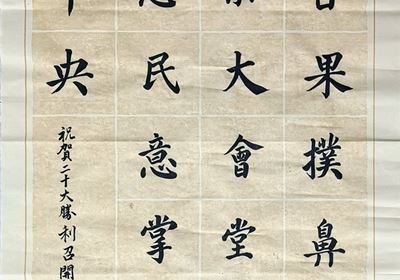 果撲鼻
大會堂
民意掌
央
祝賀二十大勝利召開